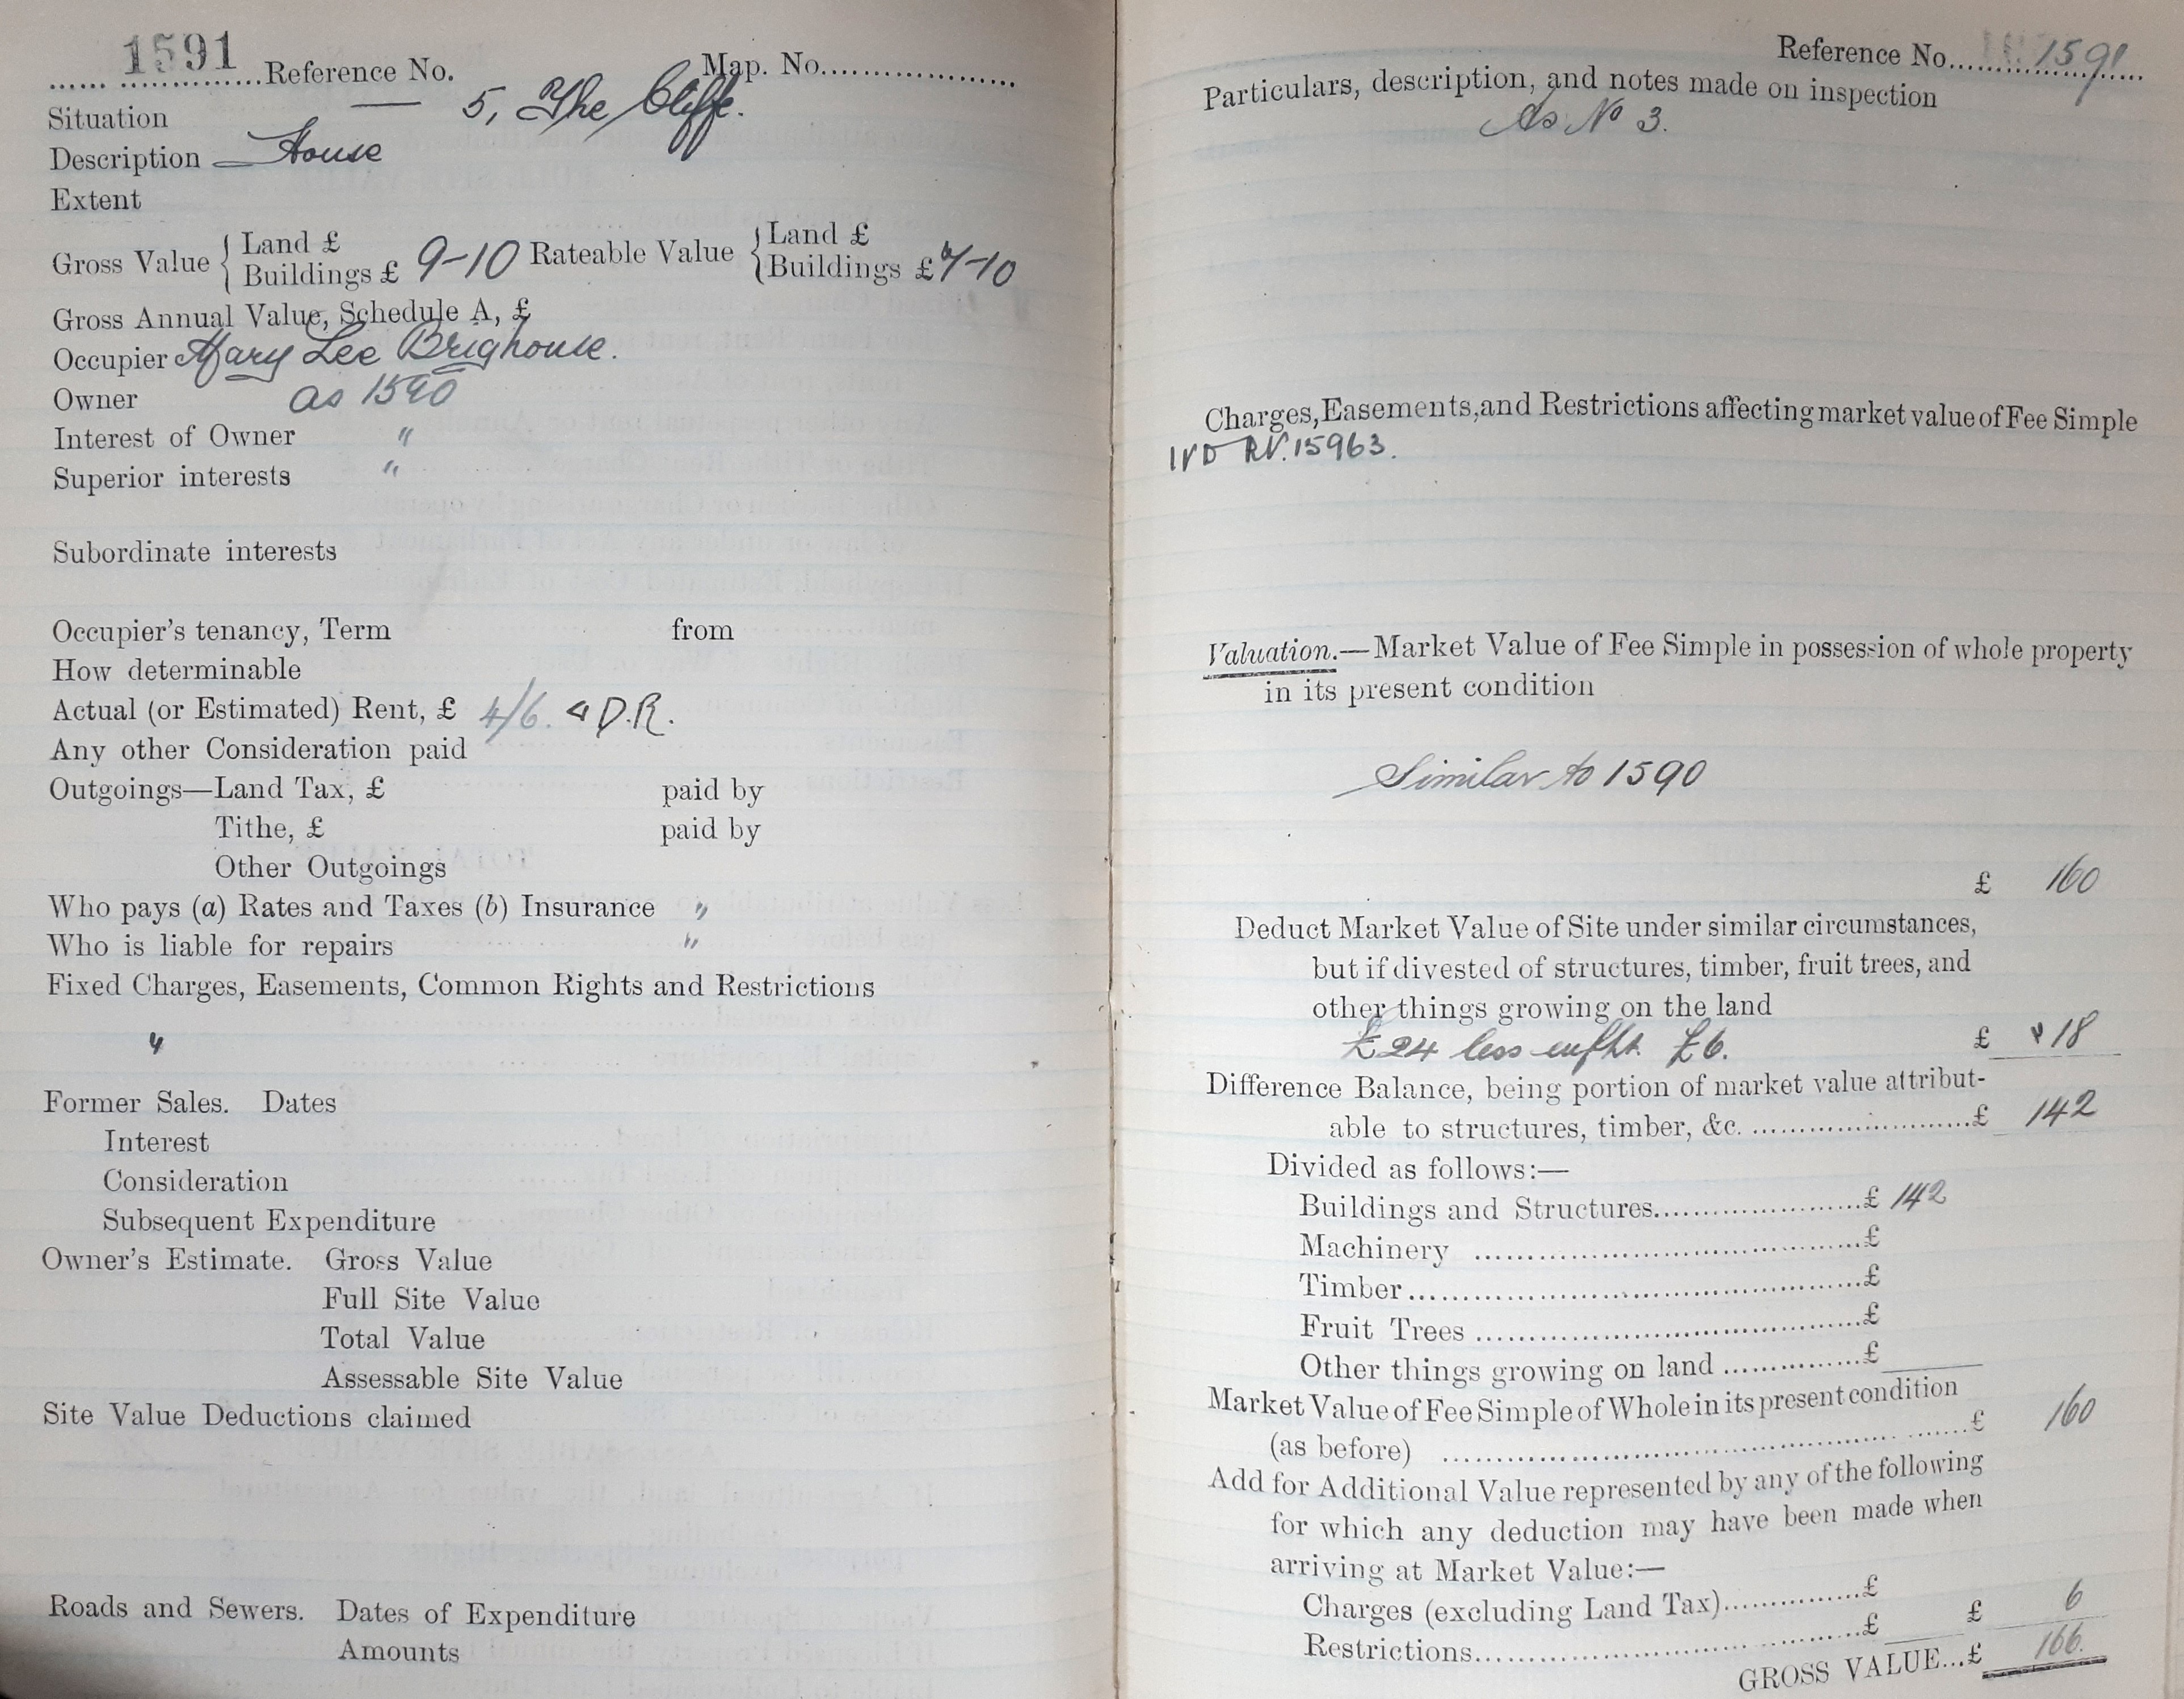 1591 Reference No. Map. No.
Situation — 5, The Cliffe.
Description House
Extent
Gross Value { Land £ Rateable Value { Land £
Buildings £ 9-10 Buildings £ 7-10
Gross Annual Value, Schedule A, £
Occupier Mary Lee Brighouse.
Owner as 1590
Interest of Owner "
Superior interests "
Subordinate interests
Occupier's tenancy, Term from
How determinable
Actual (or Estimated) Rent, £ 4/6. D.R.
Any other Consideration paid
Outgoings—Land Tax, £ paid by
Tithe, £ paid by
Other Outgoings
Who pays (a) Rates and Taxes (b) Insurance "
Who is liable for repairs "
Fixed Charges, Easements, Common Rights and Restrictions
"
Former Sales. Dates
Interest
Consideration
Subsequent Expenditure
Owner's Estimate. Gross Value
Full Site Value
Total Value
Assessable Site Value
Site Value Deductions claimed
Roads and Sewers. Dates of Expenditure
Amounts
Reference No. 1591
Particulars, description, and notes made on inspection
As No 3.
Charges, Easements, and Restrictions affecting market value of Fee Simple
IVD RV. 15963.
Valuation.—Market Value of Fee Simple in possession of whole property
in its present condition
Similar to 1590
£ 160
Deduct Market Value of Site under similar circumstances,
but if divested of structures, timber, fruit trees, and
other things growing on the land
£24 less £6. £ 18
Difference Balance, being portion of market value attribut-
able to structures, timber, &c. £ 142
Divided as follows:—
Buildings and Structures £ 142
Machinery £
Timber £
Fruit Trees £
Other things growing on land £
Market Value of Fee Simple of Whole in its present condition
(as before) £ 160
Add for Additional Value represented by any of the following
for which any deduction may have been made when
arriving at Market Value:—
Charges (excluding Land Tax) £
Restrictions £ £ 6
GROSS VALUE...£ 166